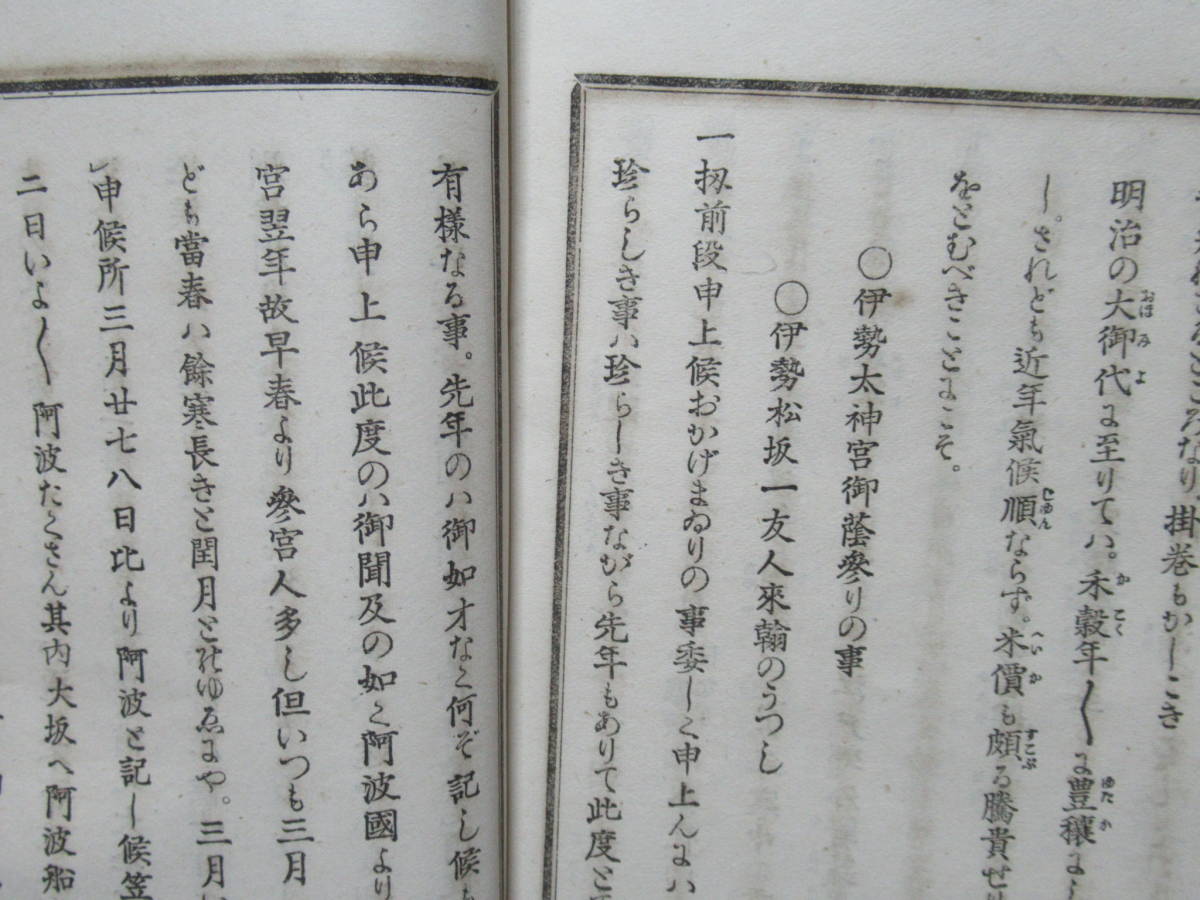 なり掛巻もかしこき
明治の大御代に至りてハ。禾穀年〱に豊穰に
し。されども近年氣候順ならず。米價も頗る騰貴せ
をとむべきことにこそ。
○伊勢太神宮御蔭參りの事
○伊勢松坂一友人來翰のうつし
一扨前段申上候おかげまゐりの事委しく申上んにハ
珍らしき事ハ珍らしき事ながら先年もありて此度と
有樣なる事。先年のハ御如才なく何ぞ記し候
あら申上候此度のハ御聞及の如く阿波國より
宮翌年故早春より參宮人多し但いつも三月
ども當春ハ餘寒長きと閏月とのゆゑにや。三月
申候所三月廿七八日比より阿波と記し候笠
二日いよ〱阿波たくさん其内大坂へ阿波船